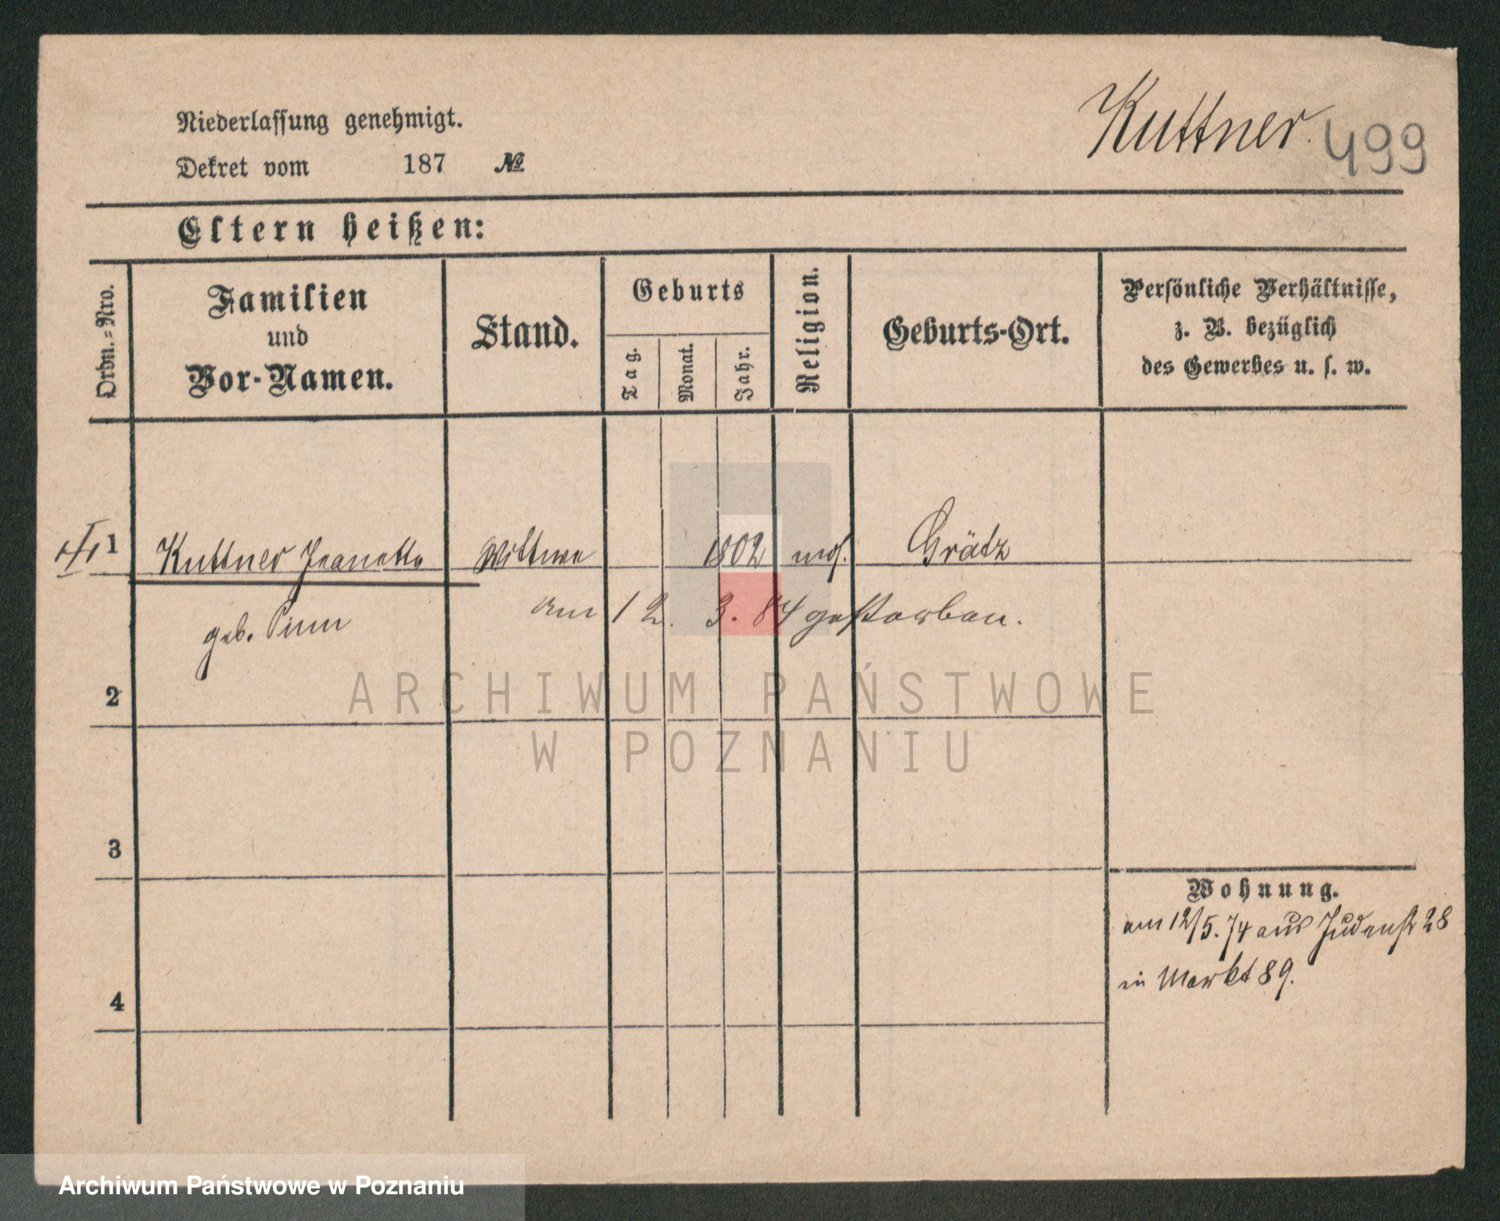 Kuttner. 499
Niederlassung genehmigt.
Dekret vom 187 №
Eltern heißen:
Ordn.-Nro.
Familien
und
Vor-Namen.
Stand.
Geburts
Tag.
Monat.
Jahr.
Religion.
Geburts-Ort.
Persönliche Verhältnisse,
z. B. bezüglich
des Gewerbes u. s. w.
1 Kuttner Jeanette Wittwe 1802 mos. Grätz
am 12. 3. 84 gestorben.
geb. Pinn
2
ARCHIWUM PAŃSTWOWE
W POZNANIU
3
Wohnung.
am 12/5. 74 aus Judenstr 28
in Markt 89.
4
Archiwum Państwowe w Poznaniu